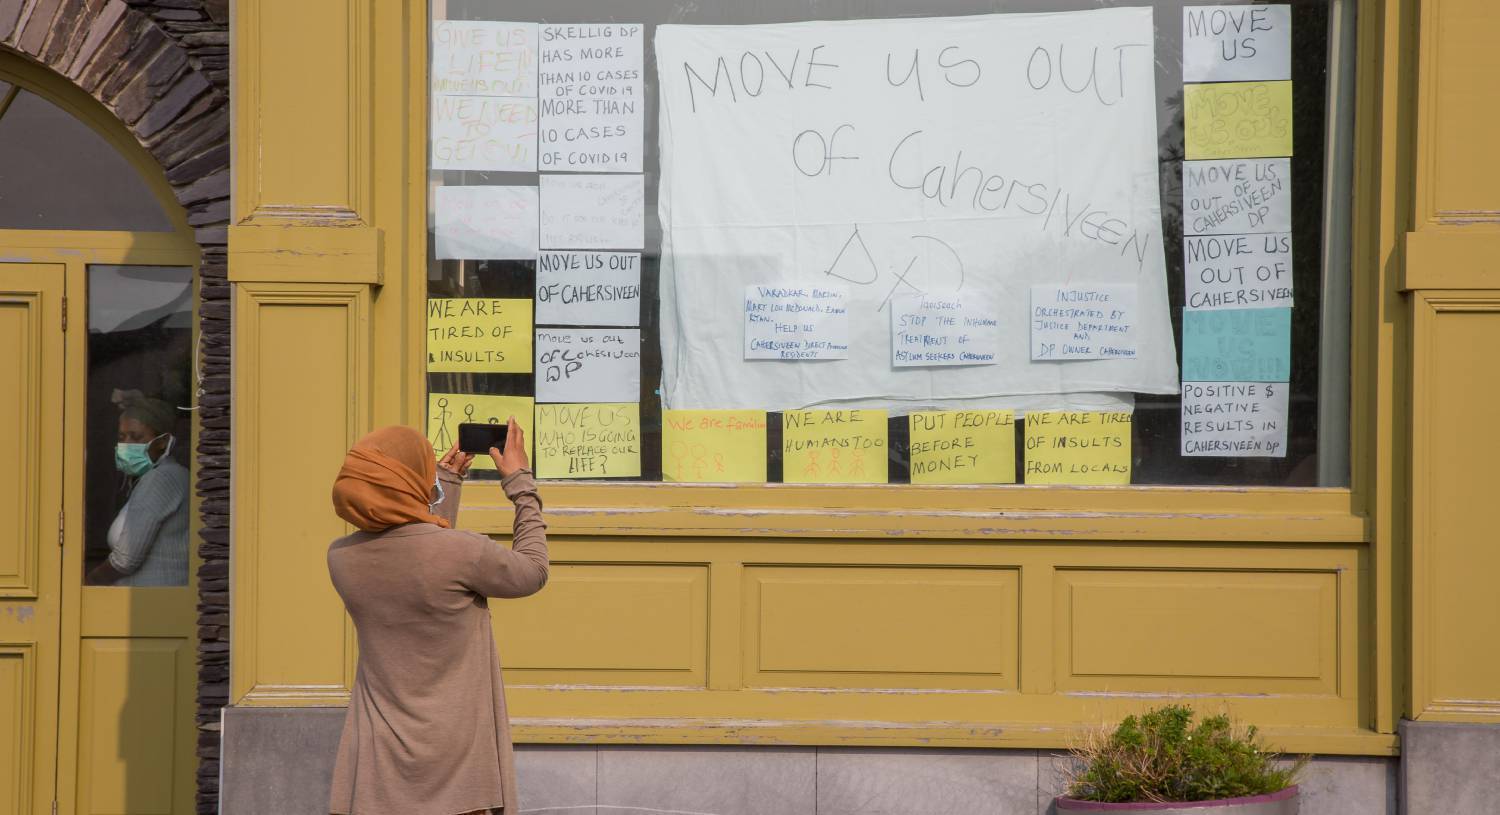 GIVE US
LIFE!!
MOVE US OUT
WE NEED
TO
GET OUT
SKELLIG DP
HAS MORE
THAN 10 CASES
OF COVID 19
MORE THAN
10 CASES
OF COVID 19
MOVE US OUT
OF CAHERSIVEEN
WE ARE
TIRED OF
INSULTS
move us out
OF
DP
MOVE US
WHO IS GOING
TO REPLACE OUR
LIFE?
MOVE US OUT
OF CahersIVEEN
VARADKAR, MARTIN,
MARY LOU McDONALD, EAMON
RYAN.
HELP US
CAHERSIVEEN DIRECT PROVISION
RESIDENTS
Taoiseach
STOP THE INHUMANE
TREATMENT OF
ASYLUM SEEKERS CAHERSIVEEN
INJUSTICE
ORCHESTRATED BY
JUSTICE DEPARTMENT
AND
DP OWNER CAHERSIVEEN
We are families
WE ARE
HUMANS TOO
PUT PEOPLE
BEFORE
MONEY
WE ARE TIRED
OF INSULTS
FROM LOCALS
MOVE
US
MOVE
US OUT
MOVE US
OUT OF
CAHERSIVEEN
DP
MOVE US
OUT OF
CAHERSIVEEN
MOVE
US
POSITIVE $
NEGATIVE
RESULTS IN
CAHERSIVEEN DP